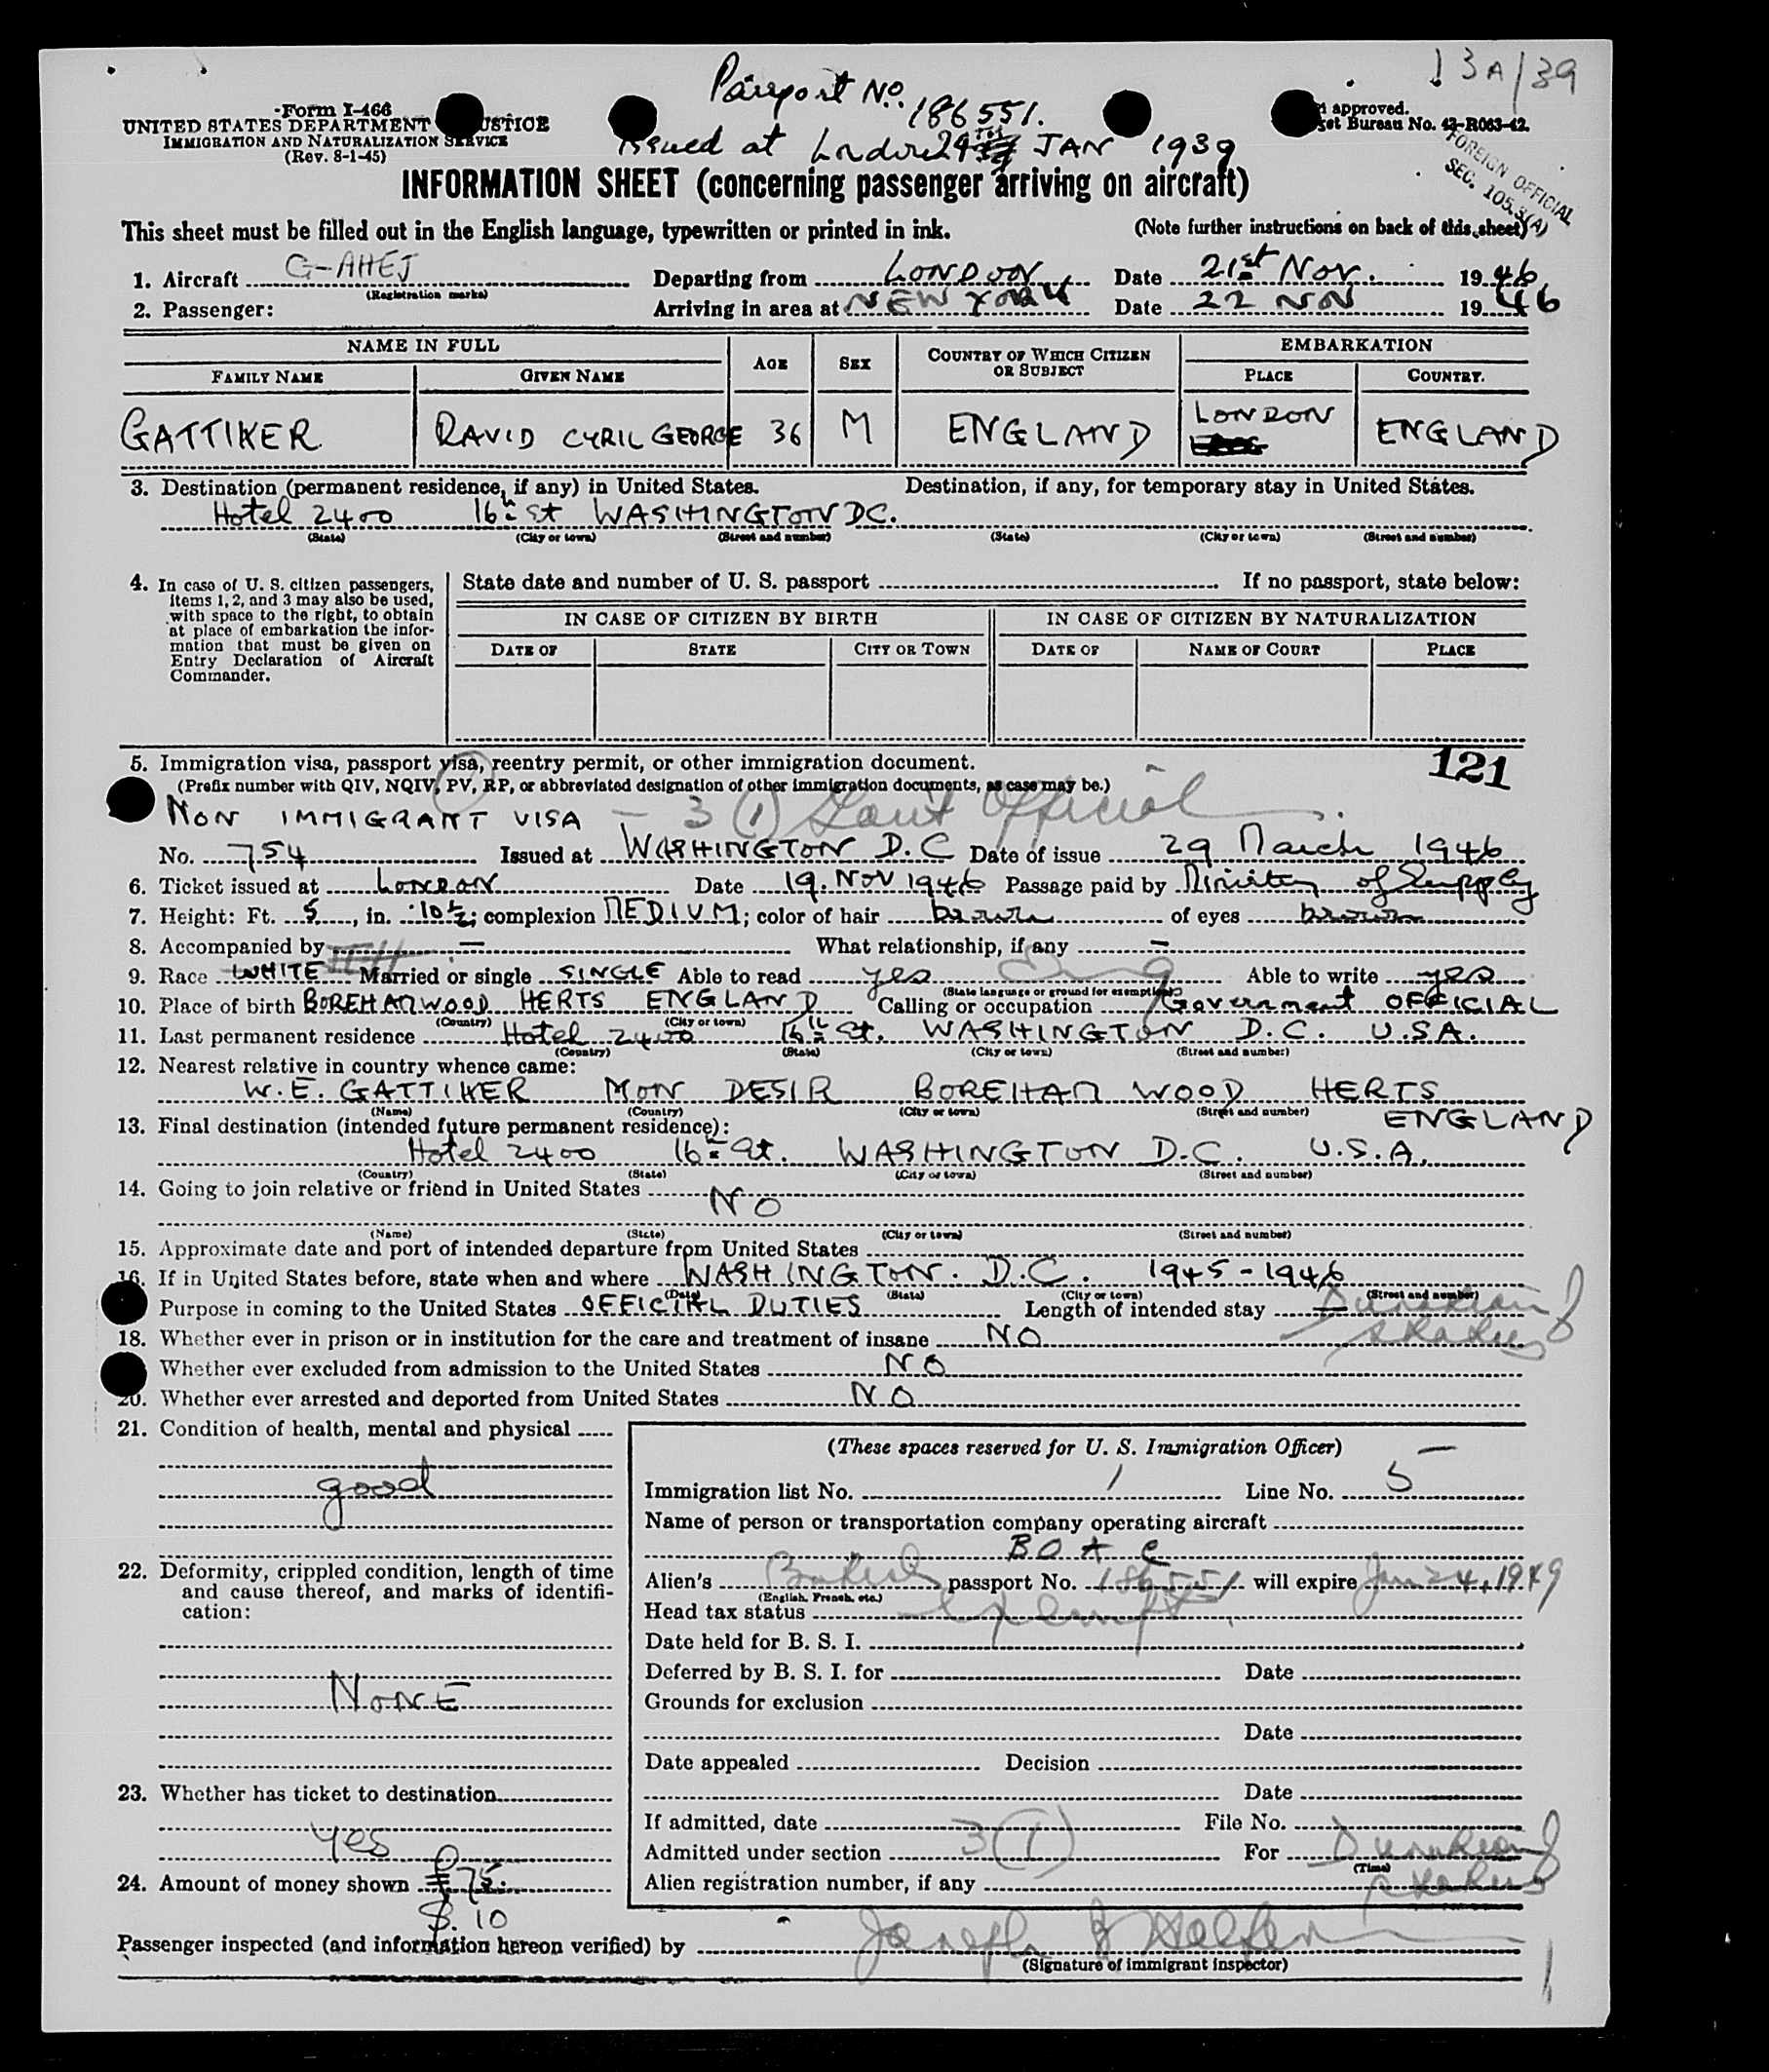 13A/39
Passport No. 186551.
Issued at London 24th JAN 1939
Form I-466
UNITED STATES DEPARTMENT JUSTICE
IMMIGRATION AND NATURALIZATION SERVICE
(Rev. 8-1-45)
approved.
Bureau No. 43-R063-42.
FOREIGN OFFICIAL
SEC. 105.3(A)
INFORMATION SHEET (concerning passenger arriving on aircraft)
This sheet must be filled out in the English language, typewritten or printed in ink. (Note further instructions on back of this sheet)
1. Aircraft G-AHEJ Departing from LONDON Date 21st Nov. 1946
(Registration marks)
2. Passenger: Arriving in area at NEW YORK Date 22 NOV 1946
NAME IN FULL AGE SEX COUNTRY OF WHICH CITIZEN OR SUBJECT EMBARKATION
FAMILY NAME GIVEN NAME PLACE COUNTRY.
GATTIKER DAVID CYRIL GEORGE 36 M ENGLAND LONDON ENGLAND
3. Destination (permanent residence, if any) in United States. Destination, if any, for temporary stay in United States.
Hotel 2400 16th St WASHINGTON DC.
(State) (City or town) (Street and number) (State) (City or town) (Street and number)
4. In case of U. S. citizen passengers, items 1, 2, and 3 may also be used, with space to the right, to obtain at place of embarkation the information that must be given on Entry Declaration of Aircraft Commander.
State date and number of U. S. passport If no passport, state below:
IN CASE OF CITIZEN BY BIRTH IN CASE OF CITIZEN BY NATURALIZATION
DATE OF STATE CITY OR TOWN DATE OF NAME OF COURT PLACE
5. Immigration visa, passport visa, reentry permit, or other immigration document. 121
(Prefix number with QIV, NQIV, PV, RP, or abbreviated designation of other immigration documents, as case may be.)
NON IMMIGRANT VISA - 3 (1) Govt Official
No. 754 Issued at WASHINGTON D.C Date of issue 29 March 1946
6. Ticket issued at LONDON Date 19. NOV 1946 Passage paid by Ministry of Supply
7. Height: Ft. 5, in. 10½; complexion MEDIUM; color of hair brown of eyes brown
8. Accompanied by — What relationship, if any —
9. Race WHITE Married or single SINGLE Able to read yes Eng Able to write yes
(State language or ground for exemption)
10. Place of birth BOREHAMWOOD HERTS ENGLAND Calling or occupation Government OFFICIAL
(Country) (City or town)
11. Last permanent residence Hotel 2400 16th St. WASHINGTON D.C. U.S.A.
(Country) (State) (City or town) (Street and number)
12. Nearest relative in country whence came:
W.E. GATTIKER MON DESIR BOREHAM WOOD HERTS
(Name) (Country) (City or town) (Street and number)
ENGLAND
13. Final destination (intended future permanent residence):
Hotel 2400 16th St. WASHINGTON D.C. U.S.A.
(Country) (State) (City or town) (Street and number)
14. Going to join relative or friend in United States
NO
(Name) (State) (City or town) (Street and number)
15. Approximate date and port of intended departure from United States
16. If in United States before, state when and where WASHINGTON. D.C. 1945-1946
(Date) (State) (City or town) (Street and number)
Purpose in coming to the United States OFFICIAL DUTIES Length of intended stay — Duration of
Status
18. Whether ever in prison or in institution for the care and treatment of insane NO
Whether ever excluded from admission to the United States NO
20. Whether ever arrested and deported from United States NO
21. Condition of health, mental and physical
good
22. Deformity, crippled condition, length of time and cause thereof, and marks of identification:
NONE
23. Whether has ticket to destination
Yes
24. Amount of money shown £75.
$.10
(These spaces reserved for U. S. Immigration Officer)
Immigration list No. 1 Line No. 5
Name of person or transportation company operating aircraft
BOAC
Alien's British passport No. 186551 will expire Jan 24, 1949
(English, French, etc.)
Head tax status exempt
Date held for B. S. I.
Deferred by B. S. I. for Date
Grounds for exclusion
Date
Date appealed Decision
Date
If admitted, date File No.
Admitted under section 3(1) For Duration of
(Time)
Status
Alien registration number, if any
Passenger inspected (and information hereon verified) by Joseph
(Signature of immigrant inspector)